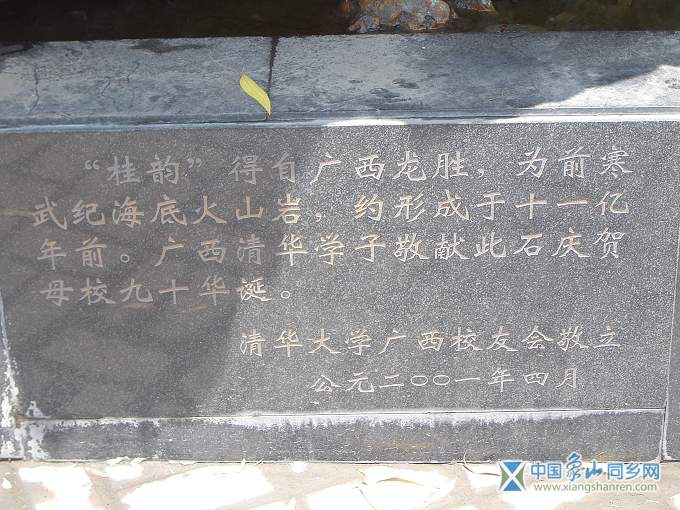 “桂韵”得自广西龙胜，为前寒
武纪海底火山岩，约形成于十一亿
年前。广西清华学子敬献此石庆贺
母校九十华诞。
清华大学广西校友会敬立
公元二〇〇一年四月
中国象山同乡网
www.xiangshanren.com